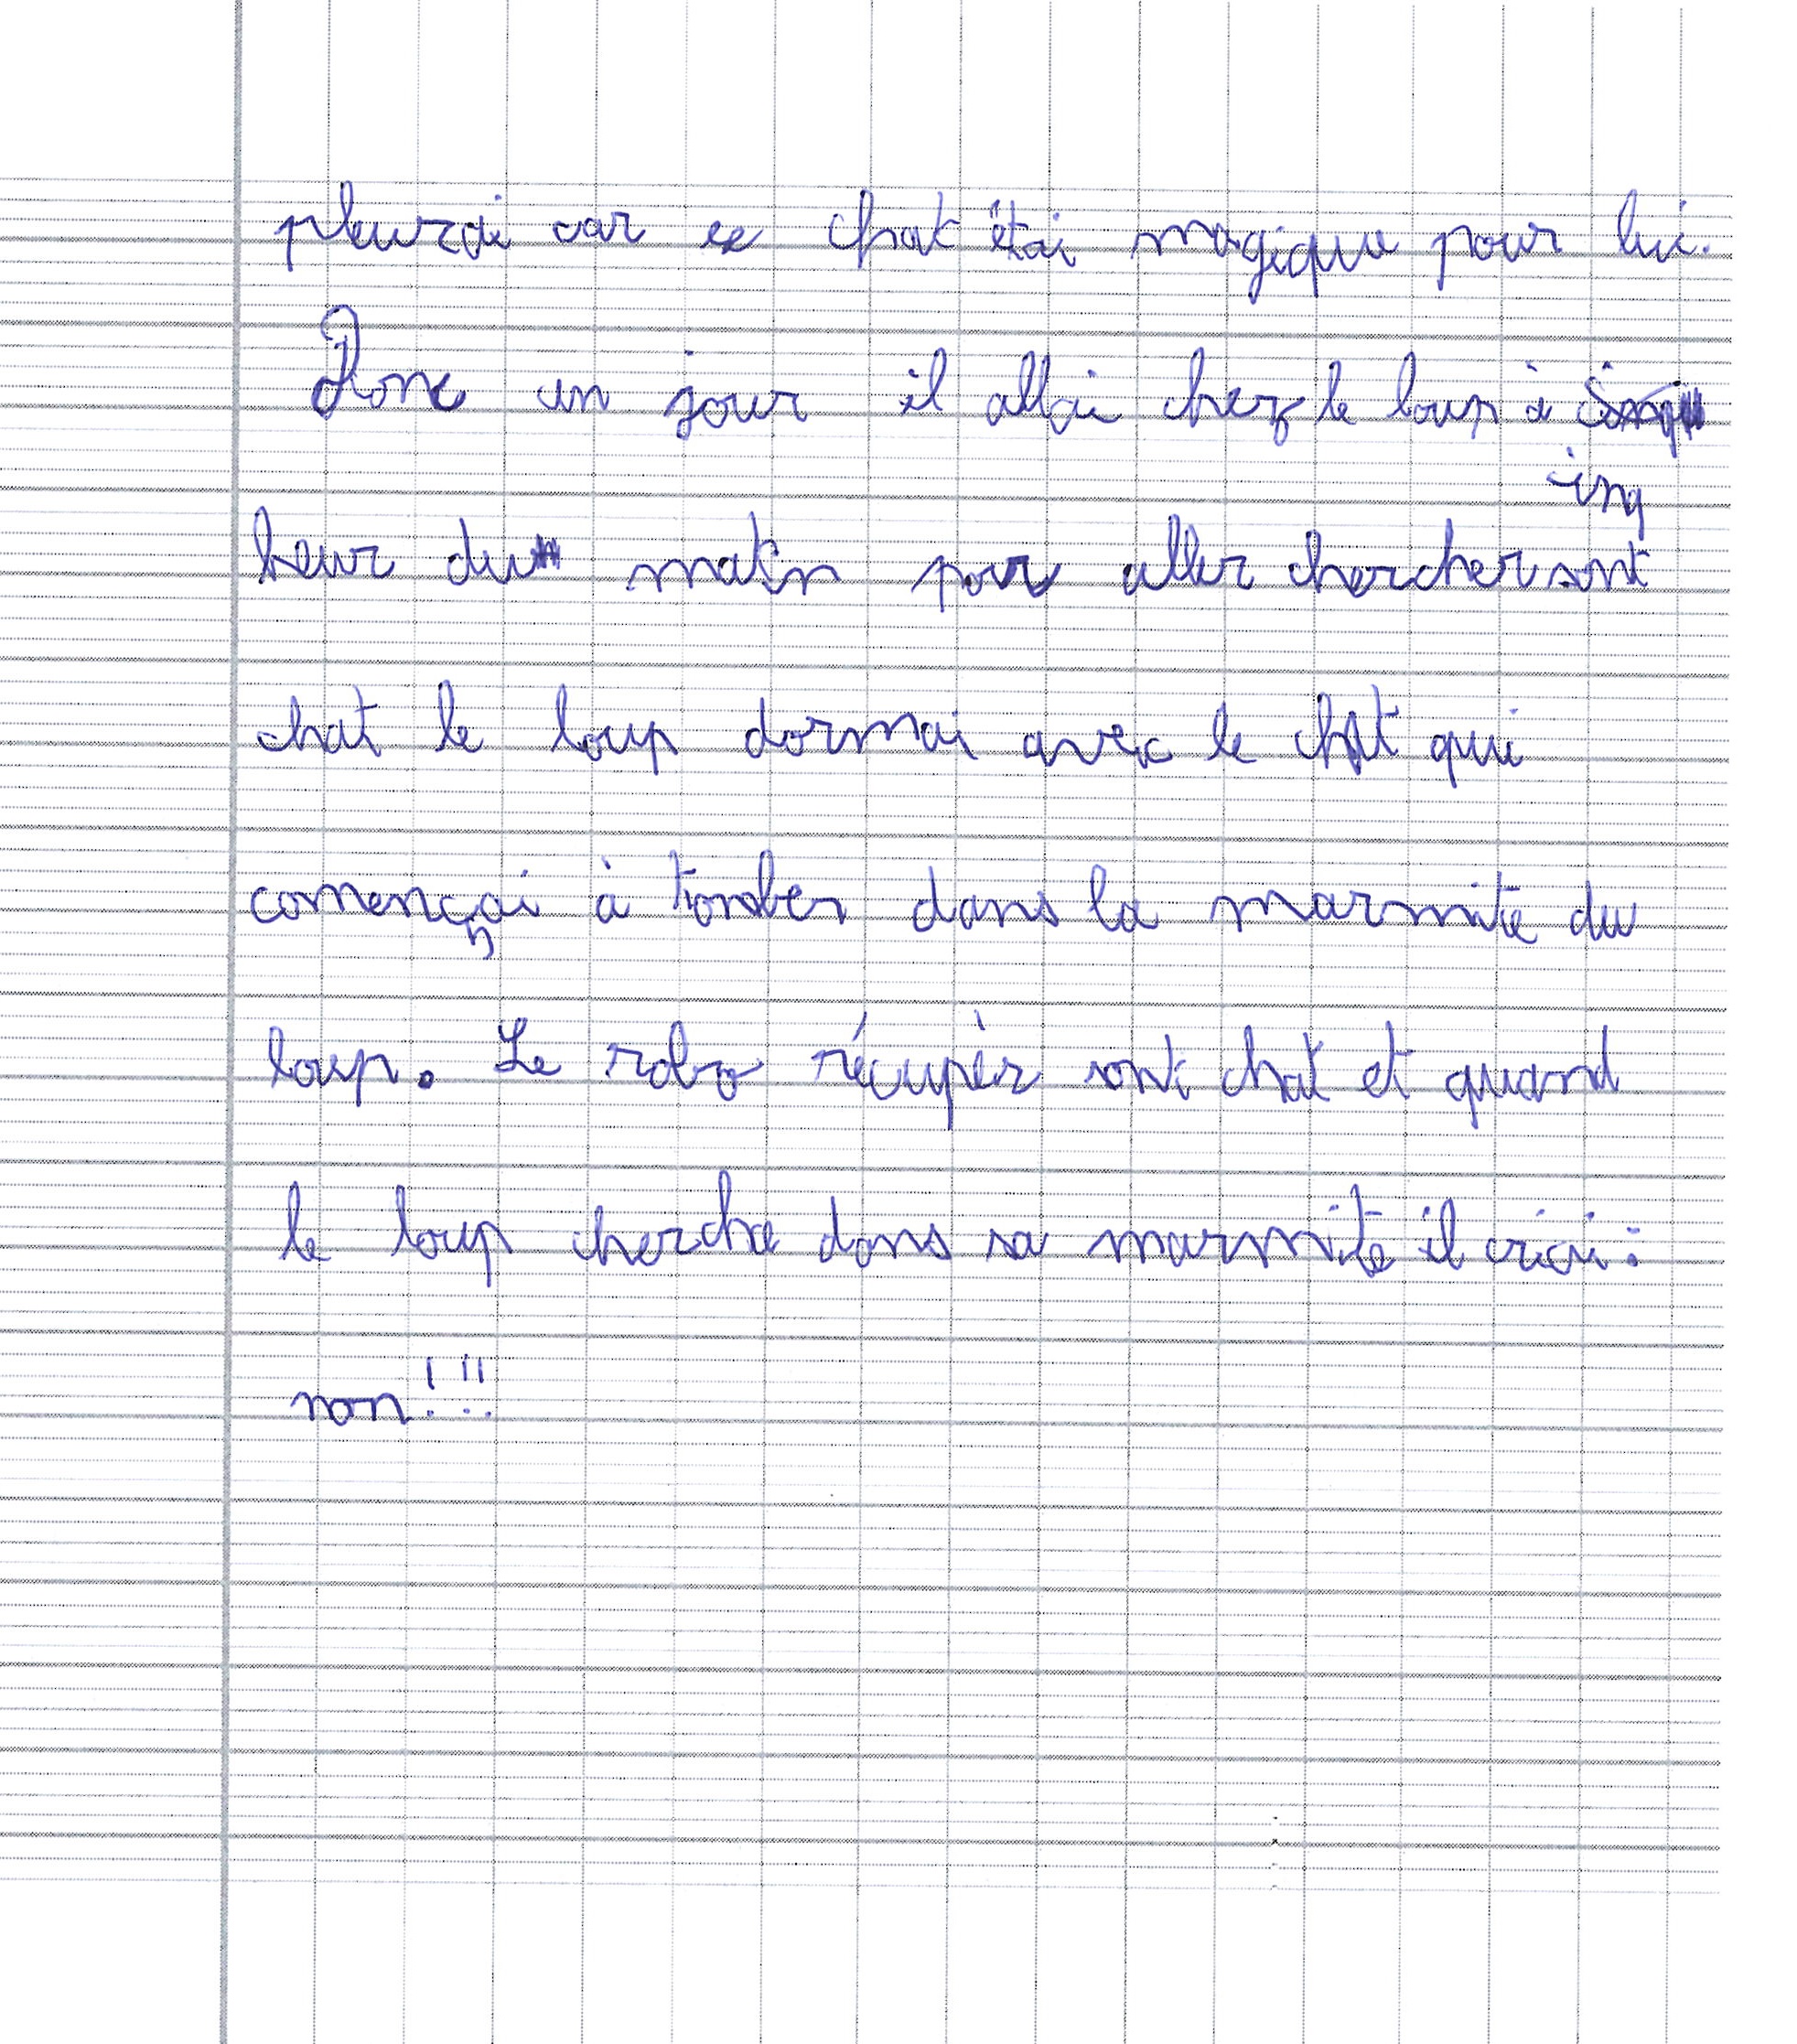 pleurai car ce chat étai magique pour lui.
Donc un jour il allai chez le loup à
cinq
heur du matin pour aller chercher sont
chat le loup dormai avec le chat qui
començai à tomber dans la marmite du
loup. Le robo récupèr sont chat et quand
le loup cherche dans sa marmite il criai :
non!!!